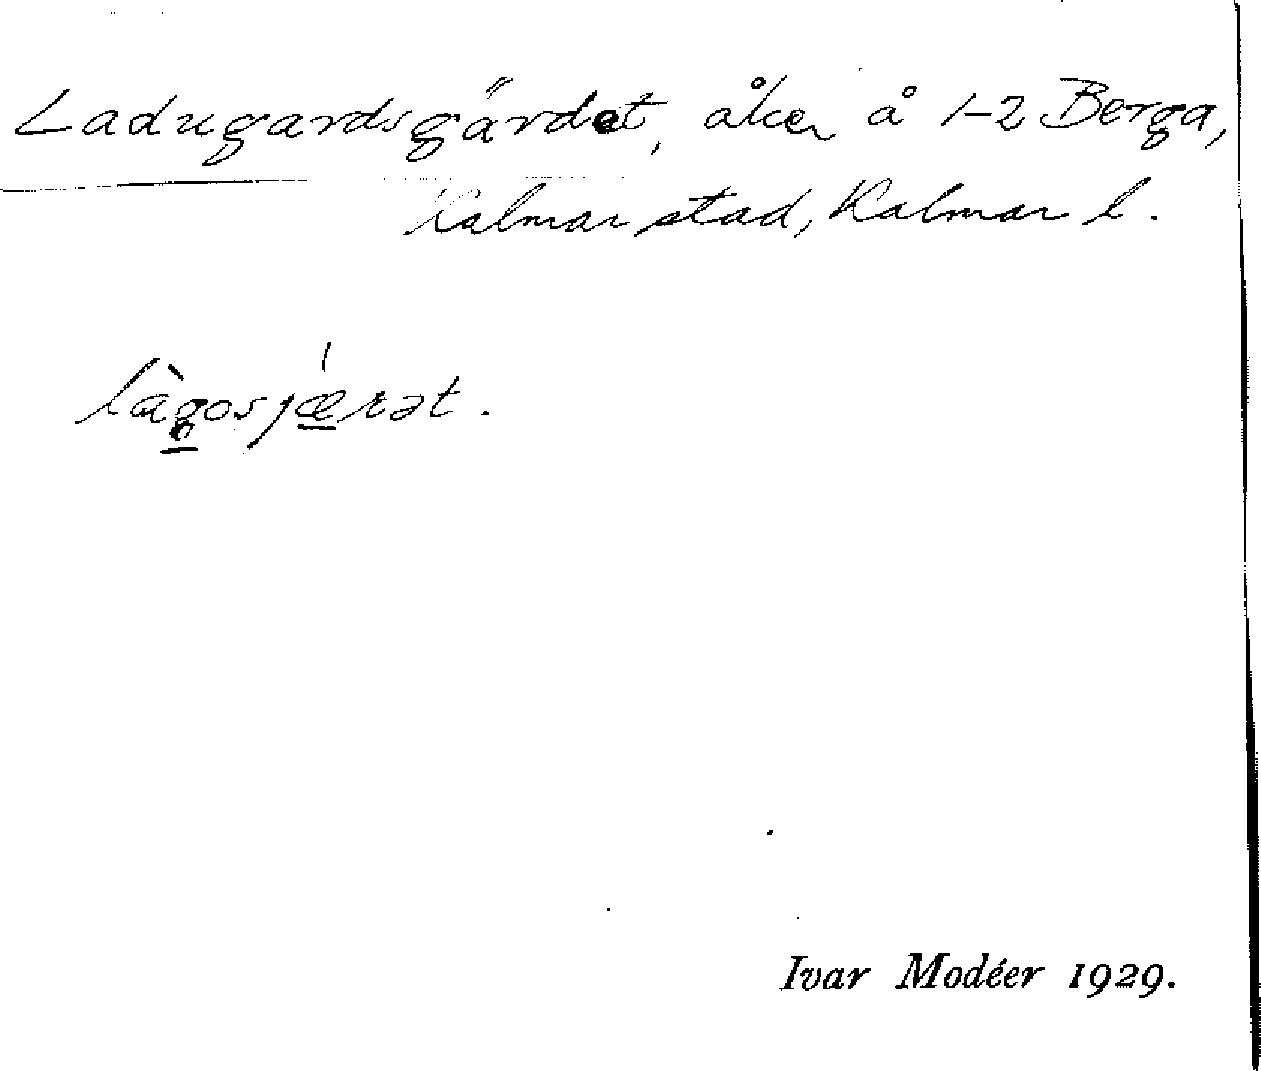 Ladugardsgärdet, åker å 1-2 Berga,
Kalmar stad, Kalmar l.
làgosjǽrət.
Ivar Modéer 1929.